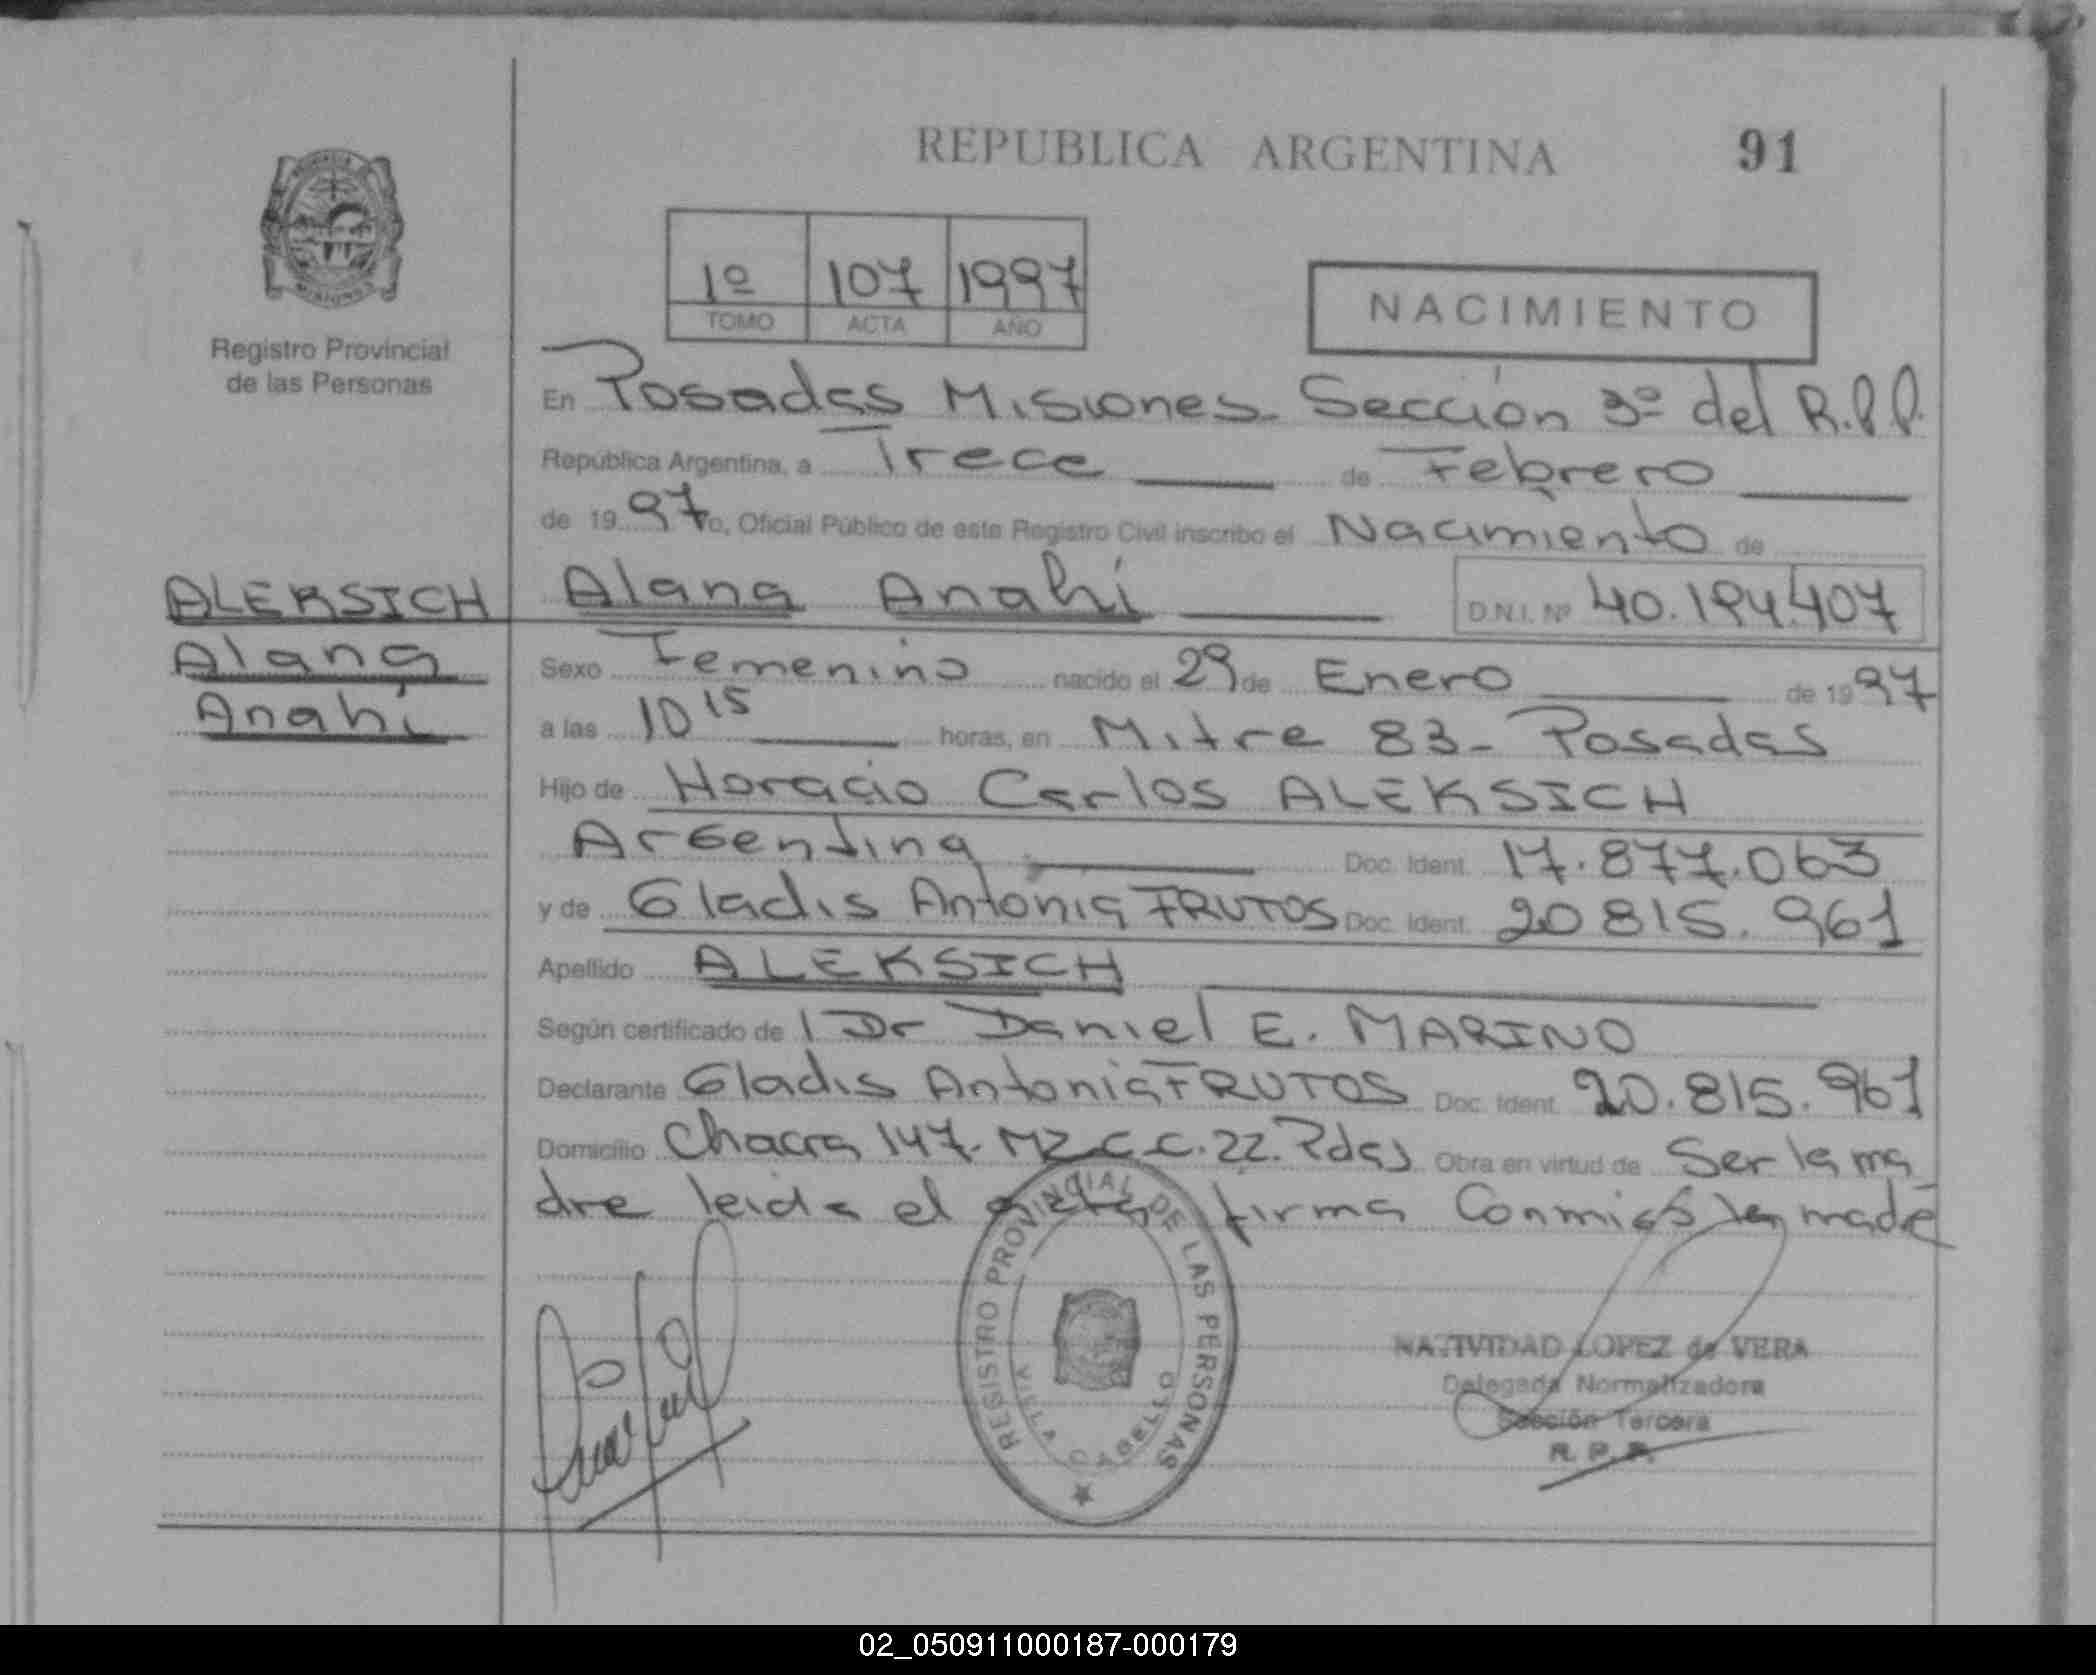 REPUBLICA ARGENTINA 91
MISIONES
Registro Provincial
de las Personas
1º 107 1997
TOMO ACTA AÑO
NACIMIENTO
En Posadas Misiones. Sección 3º del R.P.P.
República Argentina, a Trece de Febrero
de 1997 Yo, Oficial Público de este Registro Civil inscribo el Nacimiento de
ALEKSICH
Alana
Anahí
Alana Anahí D.N.I. Nº 40.194.407
Sexo Femenino nacido el 29 de Enero de 1997
a las 10 15 horas, en Mitre 83 - Posadas
Hijo de Horacio Carlos ALEKSICH
Argentina Doc. Ident. 17.877.063
y de Gladis Antonia FRUTOS Doc. Ident. 20 815.961
Apellido ALEKSICH
Según certificado de l Dr Daniel E. MARINO
Declarante Gladis Antonia FRUTOS Doc. Ident. 20.815.961
Domicilio Chacra 147. MZ C C. 22. Pdas Obra en virtud de Ser la ma
dre leida el acta firma Conmigo la madre
REGISTRO PROVINCIAL DE LAS PERSONAS
VILLA CABELLO
NATIVIDAD LOPEZ de VERA
Delegada Normalizadora
Sección Tercera
R. P. P.
02_050911000187-000179